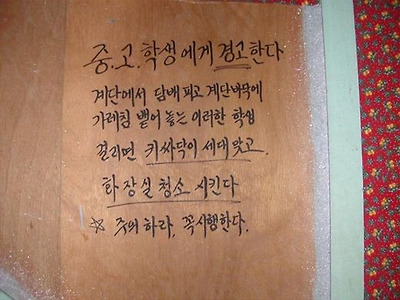 중.고.학생에게 경고한다
계단에서 담배 피고 계단바닥에
가레침 뱉어 놓는 이러한 학생
걸리면 키싸닥이 세대맞고
화장실청소 시킨다
☆ 주의하라, 꼭시행한다.